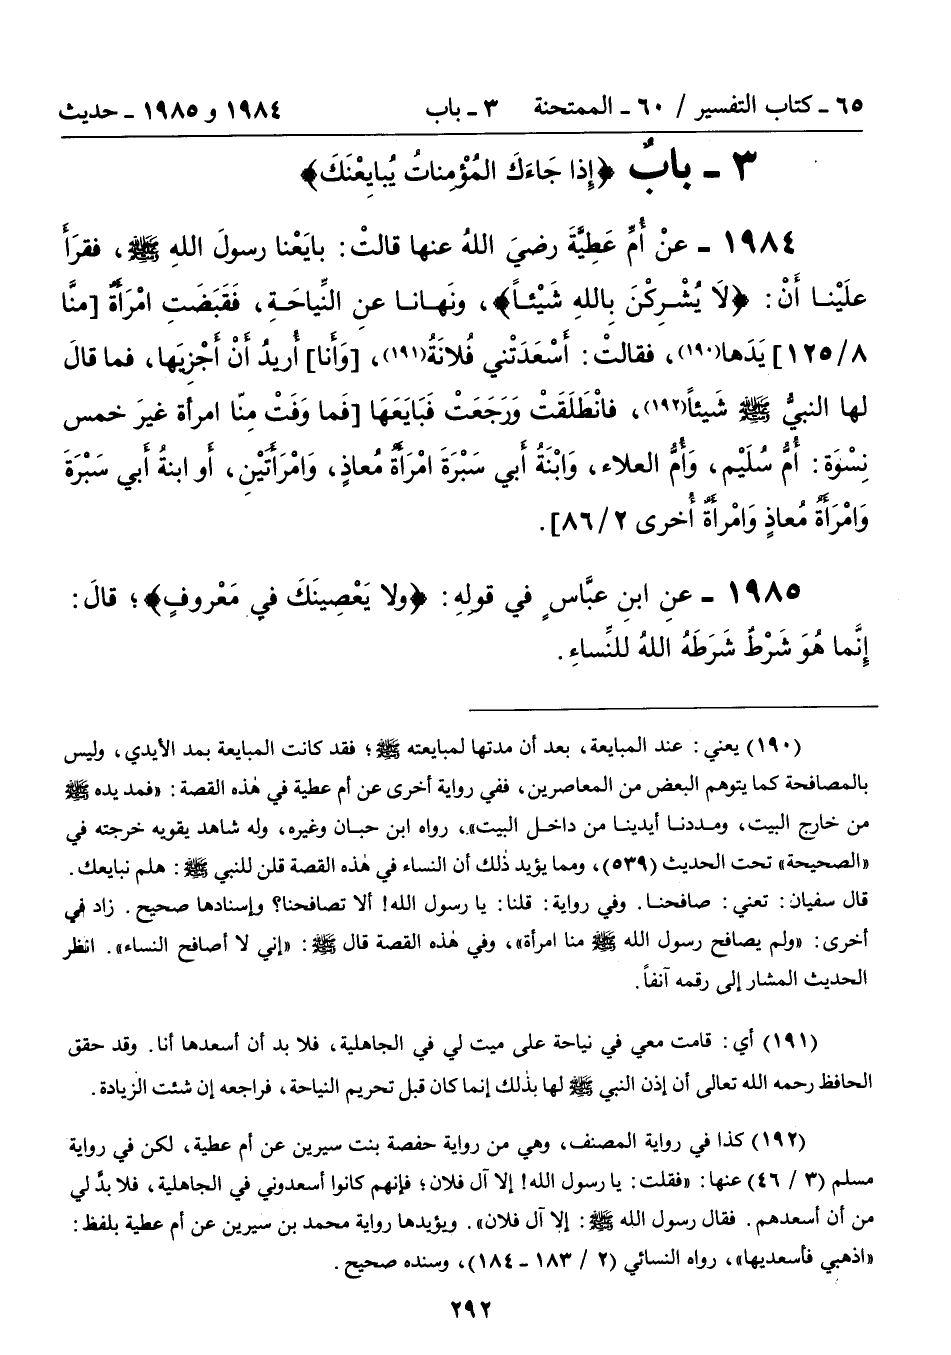 ٦٥ ـ كتاب التفسير / ٦٠ ـ الممتحنة ٣ ـ باب ١٩٨٤ و ١٩٨٥ ـ حديث
٣ ـ بابٌ ﴿إِذا جَاءَكَ المُؤْمِناتُ يُبايِعْنَكَ﴾
١٩٨٤ ـ عنْ أُمِّ عَطِيَّةَ رضيَ اللهُ عنها قالتْ: بايَعْنا رسولَ اللهِ ﷺ، فقرَأَ
علَيْنا أَنْ: ﴿لَا يُشْرِكْنَ بِاللهِ شَيْئاً﴾، ونَهانا عنِ النِّياحَةِ، فَقَبَضَتِ امْرَأَةٌ [منَّا
٨/١٢٥] يَدَها(١٩٠)، فقالتْ: أَسْعَدَتْني فُلانَةُ(١٩١)، [وَأَنا] أُريدُ أَنْ أَجْزِيَها، فما قالَ
لها النبيُّ ﷺ شَيئاً(١٩٢)، فانْطَلَقَتْ وَرَجَعَتْ فَبَايَعَهَا [فَما وَفَتْ مِنّا امرأة غيرَ خمس
نِسْوَة: أُمُّ سُلَيْم، وَأُمُّ العلاء، وَابْنَةُ أَبي سَبْرَةَ امْرَأَةُ مُعاذٍ، وَامْرَأَتَيْنِ، أَو ابنةُ أَبي سَبْرَةَ
وَامْرَأَةُ مُعاذٍ وَامْرأَةٌ أُخرى ٢/٨٦].
١٩٨٥ ـ عنِ ابنِ عبَّاسٍ في قولِهِ: ﴿ولا يَعْصِينَكَ في مَعْروفٍ﴾؛ قالَ:
إِنَّما هُوَ شَرْطٌ شَرَطَهُ اللهُ للنِّساءِ.
(١٩٠) يعني: عند المبايعة، بعد أن مدتها لمبايعته ﷺ؛ فقد كانت المبايعة بمد الأيدي، وليس
بالمصافحة كما يتوهم البعض من المعاصرين، ففي رواية أخرى عن أم عطية في هٰذه القصة: «فمد يده ﷺ
من خارج البيت، ومددنا أيدينا من داخل البيت»، رواه ابن حبان وغيره، وله شاهد يقويه خرجته في
«الصحيحة» تحت الحديث (٥٣٩)، ومما يؤيد ذٰلك أن النساء في هٰذه القصة قلن للنبي ﷺ: هلم نبايعك.
قال سفيان: تعني: صافحنا. وفي رواية: قلنا: يا رسول الله! ألا تصافحنا؟ وإسنادها صحيح. زاد في
أخرى: «ولم يصافح رسول الله ﷺ منا امرأة»، وفي هٰذه القصة قال ﷺ: «إني لا أصافح النساء». انظر
الحديث المشار إلى رقمه آنفاً.
(١٩١) أي: قامت معي في نياحة على ميت لي في الجاهلية، فلا بد أن أسعدها أنا. وقد حقق
الحافظ رحمه الله تعالى أن إذن النبي ﷺ لها بذٰلك إنما كان قبل تحريم النياحة، فراجعه إن شئت الزيادة.
(١٩٢) كذا في رواية المصنف، وهي من رواية حفصة بنت سيرين عن أم عطية، لكن في رواية
مسلم (٣ / ٤٦) عنها: «فقلت: يا رسول الله! إلا آل فلان؛ فإنهم كانوا أسعدوني في الجاهلية، فلا بدَّ لي
من أن أسعدهم. فقال رسول الله ﷺ: إلا آل فلان». ويؤيدها رواية محمد بن سيرين عن أم عطية بلفظ:
«اذهبي فأسعديها»، رواه النسائي (٢ / ١٨٣ ـ ١٨٤)، وسنده صحيح.
٢٩٢